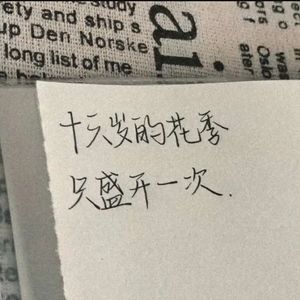 study
ety and ship's
up Den Norske
long list of me
al
Oslo
十六岁的花季
只盛开一次.